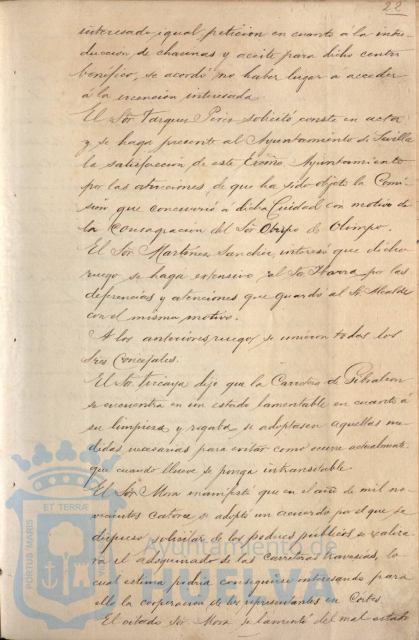 22
interesado igual petición en cuanto á la intro-
duccion de chacinas y aceite para dicho centro
benéfico, se acordó no haber lugar a acceder
á la exención interesada.
El Sor Vázquez Pérez solicitó conste en acta
y se haga presente al Ayuntamiento de Sevilla
la satisfacción de este Excmo. Ayuntamiento
por las atenciones de que ha sido objeto la Comi-
sión que concurrió a dicha Ciudad con motivo de
la Consagración del Sor Obispo de Olimpo.
El Sor Martínez Sanchez interesó que dicho
ruego se haga extensivo al Sr Ibarra por las
deferencias y atenciones que guardó al Sr Alcalde
con el mismo motivo.
A los anteriores ruegos se unieron todos los
Sres Concejales.
El Sr Vizcaya dijo que la Carretera de Gibraleon
se encuentra en un estado lamentable en cuanto á
su limpieza, y rogaba se adoptasen aquellas me-
didas necesarias para evitar como ocurre actualmente
que cuando llueve se ponga intransitable.
El Sor Mora manifestó que en el año de mil no-
vecientos catorce se adoptó un acuerdo por el que se
dispuso solicitar de los poderes públicos se
el adoquinado de las Carreteras travesías, lo
cual estima podría conseguirse interesando para
ello la cooperación de los representantes en Cortes.
El citado Sor Mora se lamentó del mal estado
PORTUS MARIS
ET TERRÆ
Ayuntamiento de
HUELVA